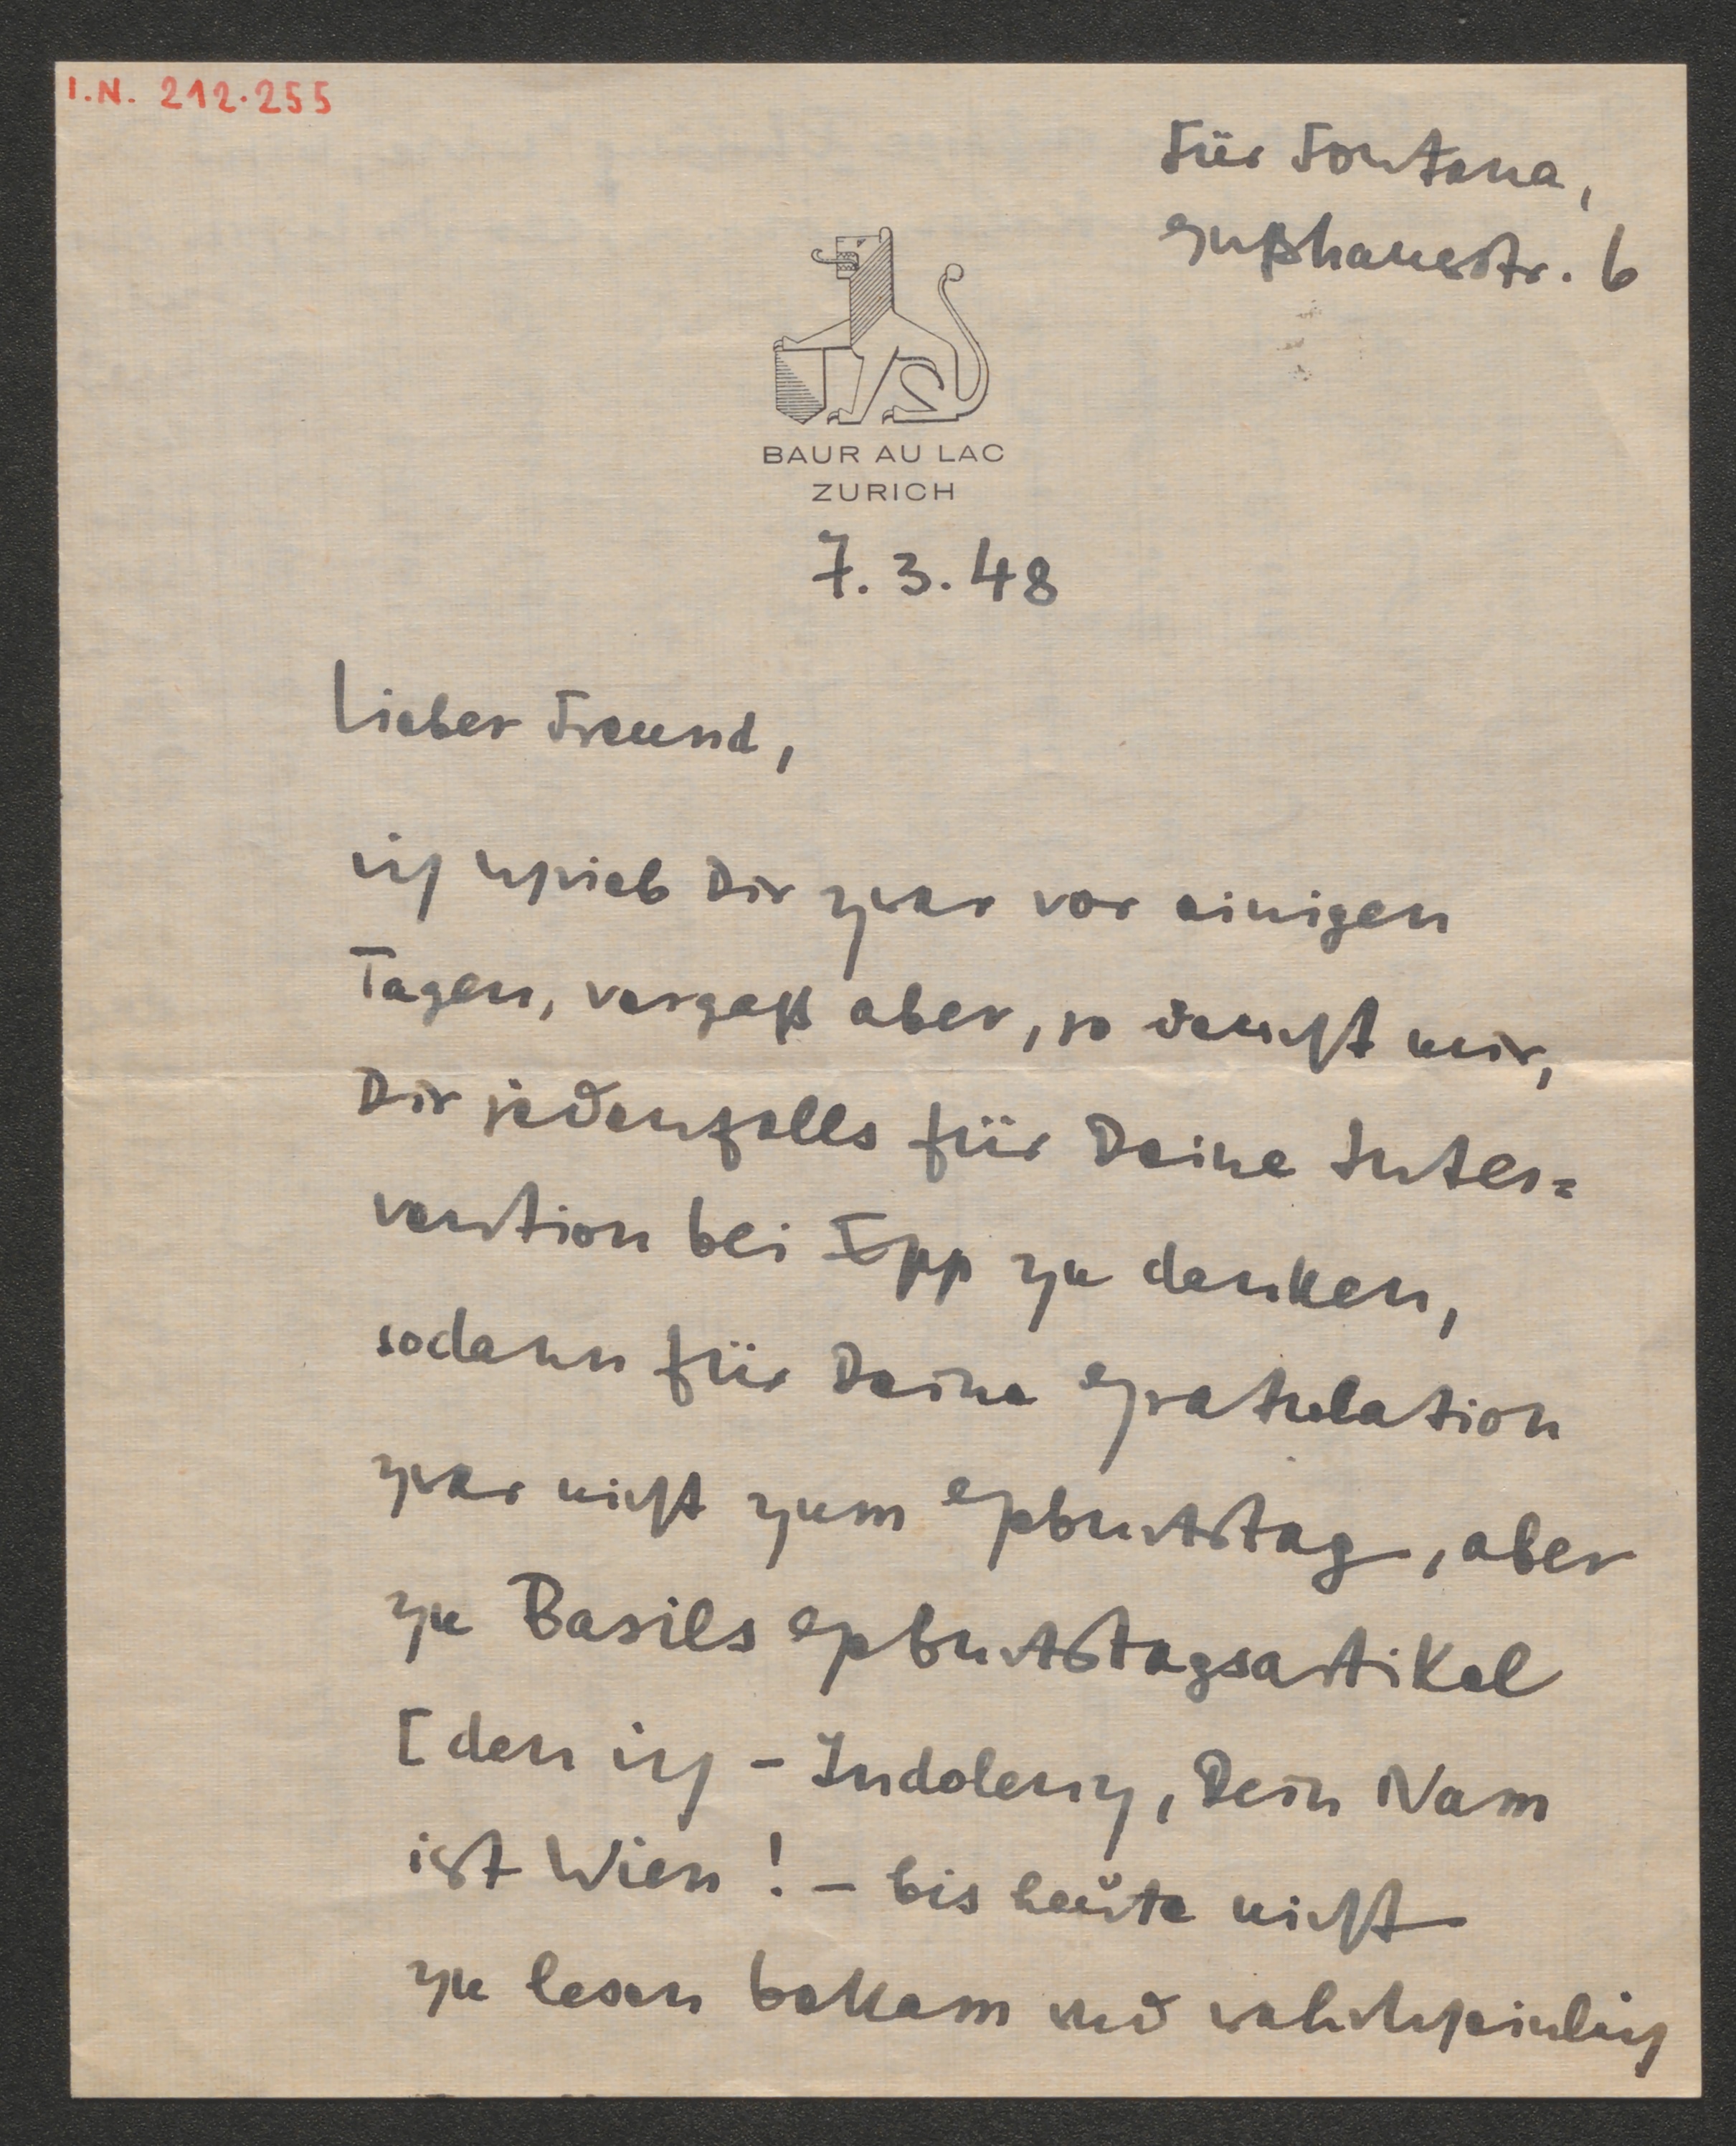 I.N. 212.255
Für Fontana,
Gußhausstr. 6
BAUR AU LAC
ZURICH
7. 3. 48
Lieber Freund,
ich schrieb Dir zwar vor einigen
Tagen, vergaß aber, so deucht mir,
Dir jedenfalls für Deine Inter=
vention bei Epp zu danken,
sodann für Deine Gratulation
zwar nicht zum Geburtstag, aber
zu Basils Geburtstagsartikel
[den ich – Indolenz, Dein Nam
ist Wien! – bis heute nicht
zu lesen bekam und wahrscheinlich